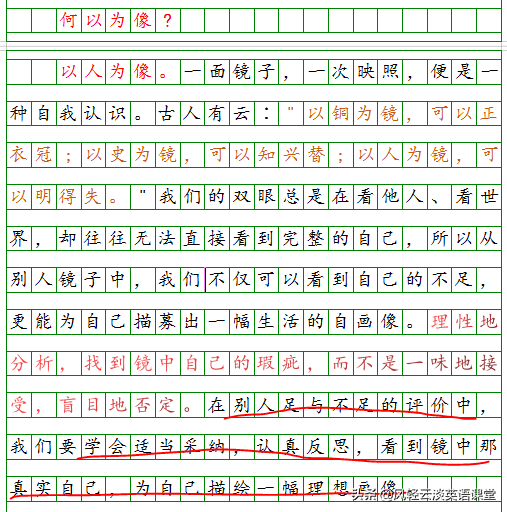 何以为像？
以人为像。一面镜子，一次映照，便是一
种自我认识。古人有云："以铜为镜，可以正
衣冠；以史为镜，可以知兴替；以人为镜，可
以明得失。"我们的双眼总是在看他人、看世
界，却往往无法直接看到完整的自己，所以从
别人镜子中，我们不仅可以看到自己的不足，
更能为自己描募出一幅生活的自画像。理性地
分析，找到镜中自己的瑕疵，而不是一味地接
受，盲目地否定。在别人足与不足的评价中，
我们要学会适当采纳，认真反思，看到镜中那
真实自己，为自己描绘一幅理想画像
头条@风轻云淡英语课堂